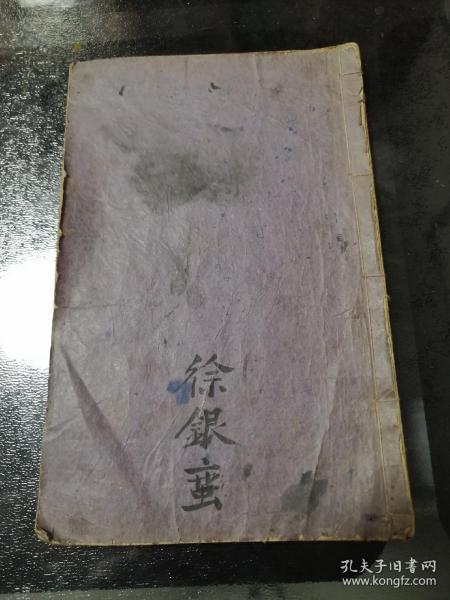 徐銀蚕
孔夫子旧书网
www.kongfz.com